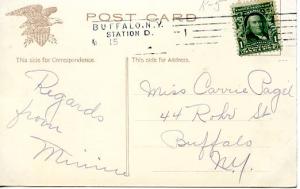 POST CARD
N-5
BUFFALO, N.Y.
STATION D.
15
This side for Correspondence.
This side for Address.
Regards
from
Minnie
Miss Carrie Pagel
44 Rohr St
Buffalo
N.Y.